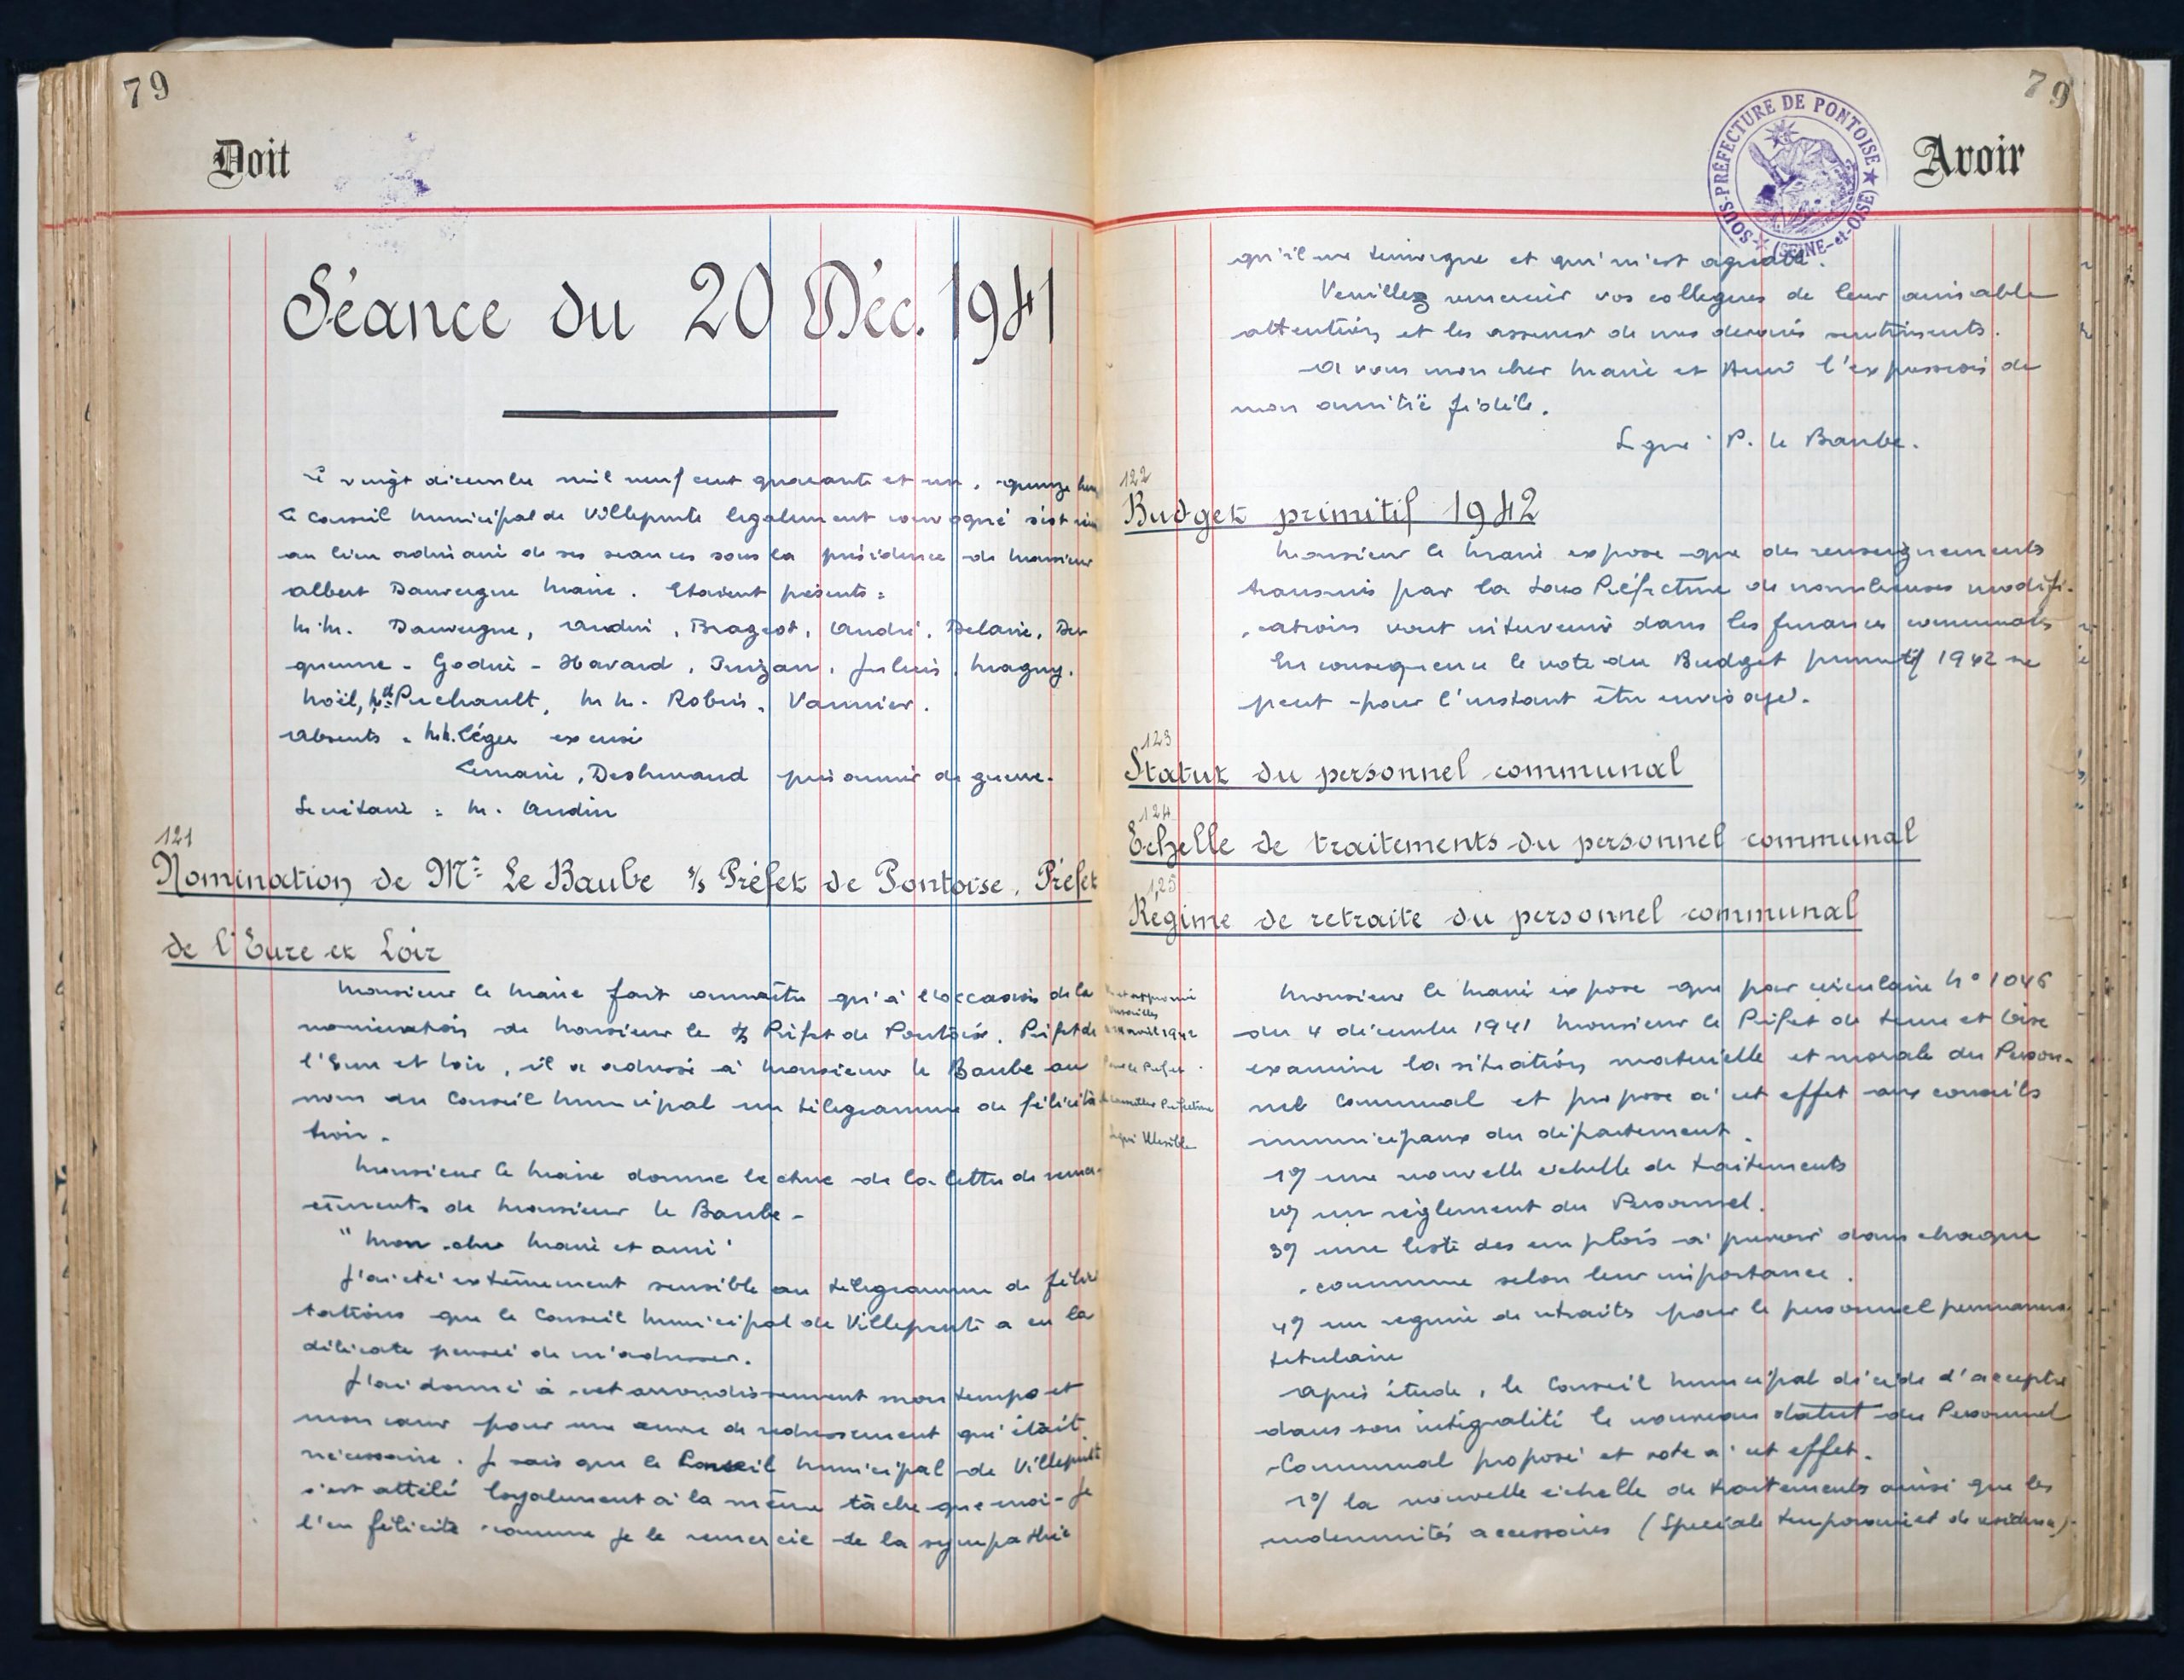 79
Doit
Séance du 20 Déc. 1941
Le vingt décembre mil neuf cent quarante et un, quinze heu
Le Conseil Municipal de Villepinte légalement convoqué s'est réu
au lieu ordinaire de ses séances sous la présidence de Monsieur
Albert Dauvergne Maire. Etaient présents :
M.M. Dauvergne, Audin, Brageot, André, Delarie, Des
quenne - Godin - Havard, Julien, Magny,
Noël, Puchault, M.M. Robin, Vannier.
Absents : M.M. Léger excusé
Lemaire, Deshmand prisonnier de guerre.
Secrétaire : M. Audin
121
Nomination de Mr Le Baube s/s Préfet de Pontoise, Préfet
de l'Eure et Loir
Monsieur le Maire fait connaître qu'à l'occasion de la
nomination de Monsieur le s/s Préfet de Pontoise, Préfet de
l'Eure et Loir, il a adressé à Monsieur le Baube au
nom du Conseil Municipal un télégramme de félicita
tion.
Monsieur le Maire donne lecture de la lettre de remer
ciements de Monsieur le Baube -
"Mon cher Maire et ami"
J'ai été extrêmement sensible au télégramme de félici
tations que le Conseil Municipal de Villepinte a eu la
délicate pensée de m'adresser.
J'ai donné à cet arrondissement mon temps et
mon cœur pour une œuvre de redressement qui était
nécessaire. Je sais que le Conseil Municipal de Villepinte
s'est attelé loyalement à la même tâche que moi - Je
l'en félicite comme je le remercie de la sympathie
79
Avoir
SOUS-PRÉFECTURE DE PONTOISE
(SEINE-et-OISE)
qu'il me témoigne et qui m'est agréable.
Veuillez remercier vos collègues de leur aimable
attention et les assurer de mes dévoués sentiments.
A vous mon cher Maire et Ami l'expression de
mon amitié fidèle.
Signé : P. le Baube.
122
Budget primitif 1942
Monsieur le Maire expose que des renseignements
transmis par la Sous Préfecture de nombreuses modifi-
cations vont intervenir dans les finances communales
En conséquence le vote du Budget primitif 1942 ne
peut pour l'instant être envisagé.
123
Statut du personnel communal
124
Echelle de traitements du personnel communal
125
Régime de retraite du personnel communal
Vu et approuvé
Versailles
avril 1942
Pour le Préfet
le Conseiller Préfecture
Signé Illisible
Monsieur le Maire expose que par circulaire N° 1046
du 4 décembre 1941 Monsieur le Préfet de Seine et Oise
examine la situation matérielle et morale du Person-
nel Communal et propose à cet effet aux conseils
municipaux du département.
1°/ une nouvelle échelle de traitements
2°/ un règlement du Personnel.
3°/ une liste des emplois à prévoir dans chaque
commune selon leur importance.
4°/ un régime de retraits pour le personnel permanent
titulaire
Après étude, le Conseil Municipal décide d'accepter
dans son intégralité le nouveau statut du Personnel
Communal proposé et vote à cet effet.
1°/ la nouvelle échelle de traitements ainsi que les
indemnités accessoires (Spéciale temporaire et de résidence)